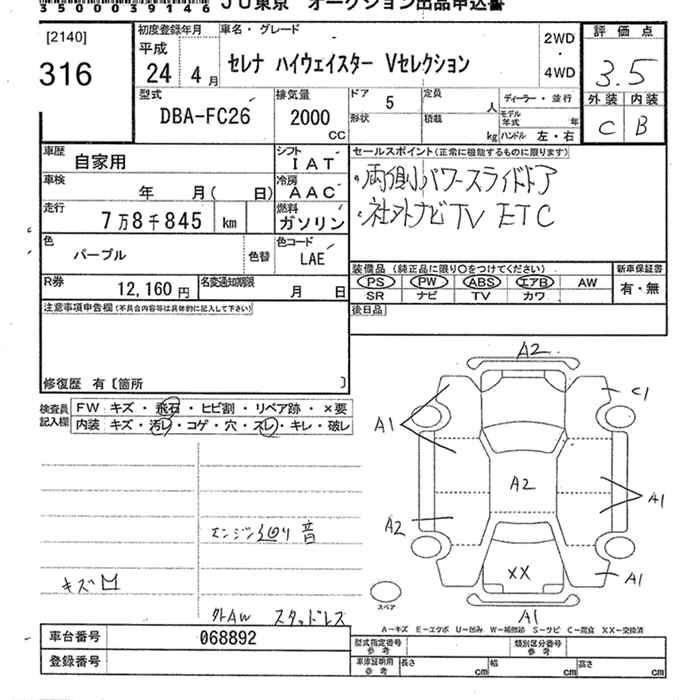 35000039146 JU東京 オークション出品申込書
[2140]
316
初度登録年月
平成
24年 4月
車名・グレード
セレナ ハイウェイスター Vセレクション
2WD
・
4WD
評価点
3.5
外装 内装
C B
型式
DBA-FC26
排気量
2000
CC
ドア
5
定員
人
ディーラー・並行
形状
積載
kg
モデル年式
年
ハンドル 左・右
車歴
自家用
シフト
IAT
車検
年 月( 日)
冷房
AAC
走行
7万8千845 km
燃料
ガソリン
色
パープル
色替
色コード
LAE
R券
12,160円
名変通知期限
月 日
セールスポイント(正常に機能するものに限ります)
両側パワースライドドア
社外ナビ TV ETC
装備品(純正品に限り○をつけてください)
PS PW ABS エアB AW
SR ナビ TV カワ
新車保証書
有・無
後日品
注意事項申告欄(不具合内容等は具体的に記入して下さい)
修復歴 有〔箇所 〕
検査員記入欄
FW キズ・飛石・ヒビ割・リペア跡・×要
内装 キズ・汚レ・コゲ・穴・スレ・キレ・破レ
エンジン廻り 音
キズ凹
外AW スタッドレス
A2
C1
A1
A2
A1
A2
XX
A1
A1
スペア
A-キズ E-エクボ U-凹み W-補修跡 S-サビ C-腐食 XX-交換済
車台番号 068892
登録番号
型式指定番号 参考
類別区分番号 参考
車庫証明用 参考
長さ cm 幅 cm 高さ cm